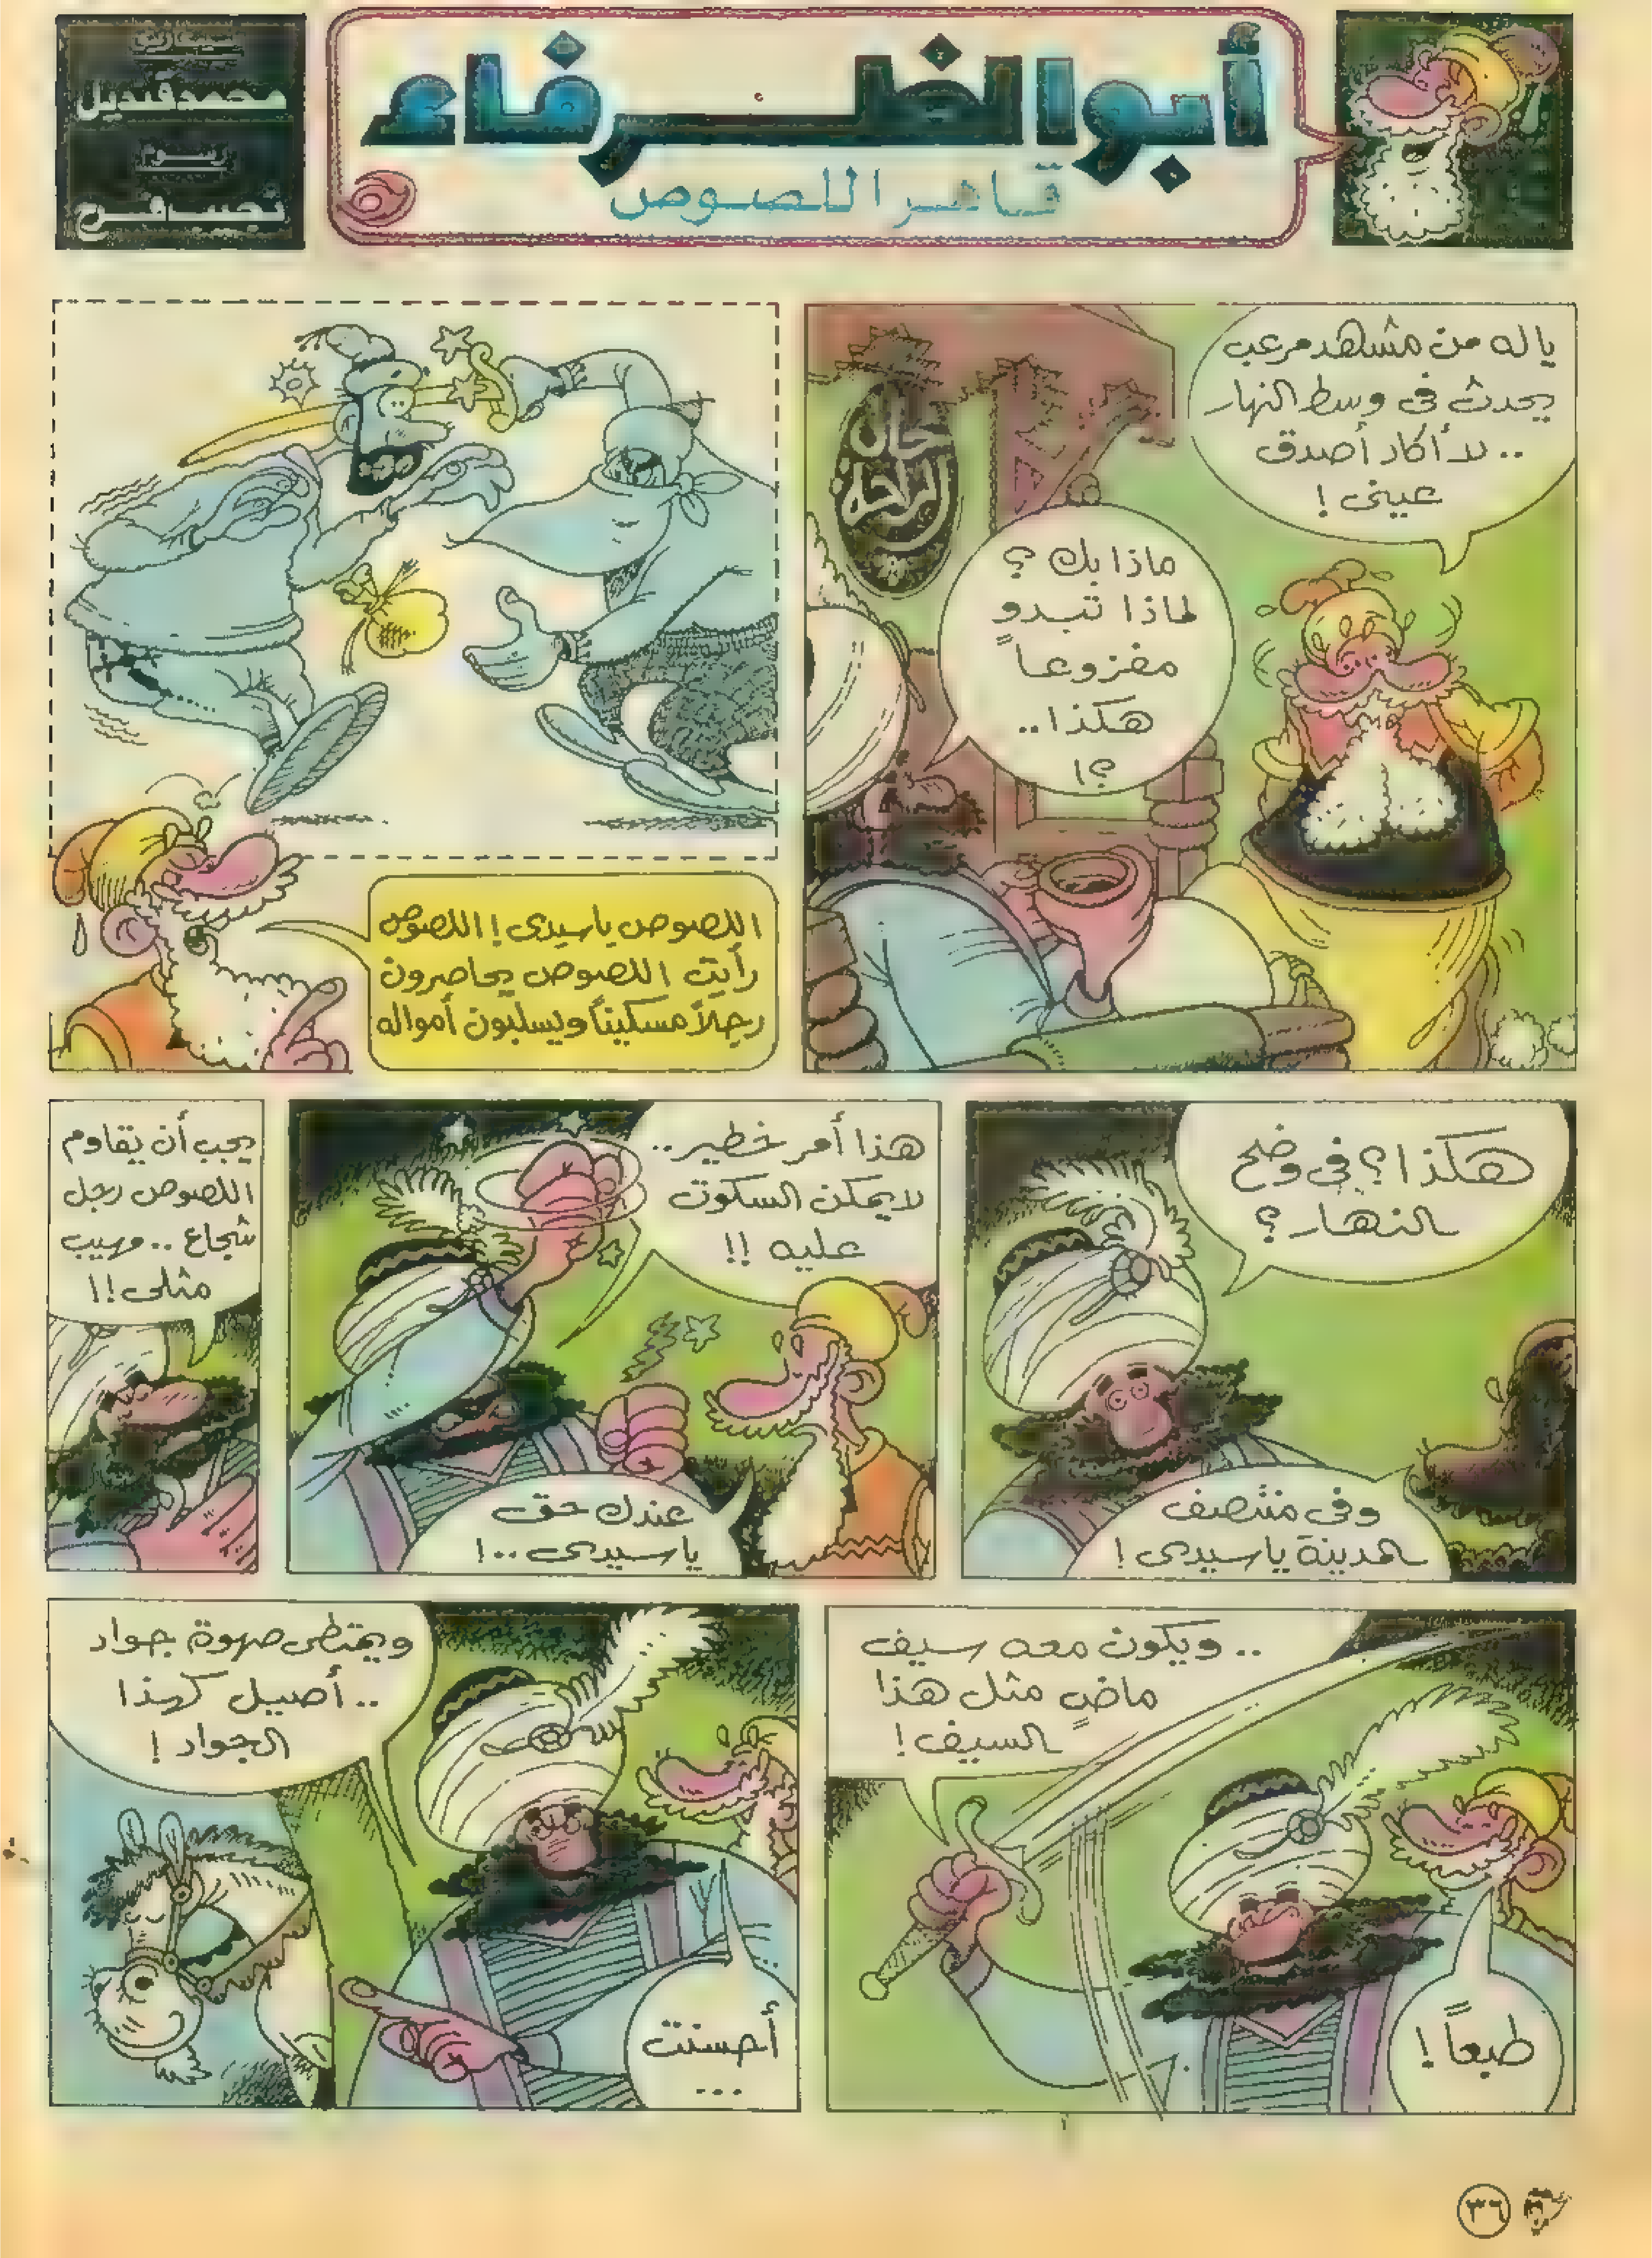 أبو الظرفاء
قاهر اللصوص
سيناريو
محمد قنديل
رسوم
نجيب فرح
ياله من مشهد مرعب
يحدث فى وسط النهار
.. لا أكاد أصدق
عينى !
ماذا بك ؟
لماذا تبدو
مفزوعاً
هكذا..
؟!
خان
الراحة
اللصوص ياسيدى ! اللصوص
رأيت اللصوص يحاصرون
رجلاً مسكيناً ويسلبون أمواله
هكذا ؟ فى وضح
النهار ؟
وفى منتصف
المدينة ياسيدى !
هذا أمر خطير ..
لا يمكن السكوت
عليه !!
عندك حق
ياسيدى ..!
يجب أن يقاوم
اللصوص رجل
شجاع .. مهيب
مثلى !!
.. ويكون معه سيف
ماضٍ مثل هذا
السيف !
طبعاً !
ويمتطى صهوة جواد
.. أصيل كهذا
الجواد !
أحسنت
...
٣٦